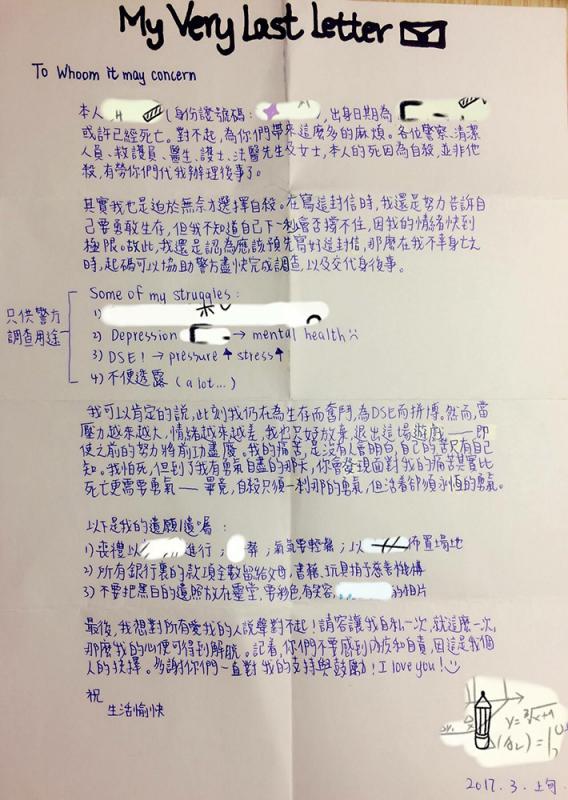 My Very Last Letter
To Whom it may concern
本人 (身份證號碼: ), 出身日期為
或許已經死亡。對不起, 為你們帶來這麼多的麻煩。各位警察、清潔
人員、救護員、醫生、護士、法醫先生及女士, 本人的死因為自殺, 並非他
殺, 有勞你們代我辦理後事了。
其實我也是迫於無奈方選擇自殺。在寫這封信時, 我還是努力告訴自
己要勇敢生存, 但我不知道自己下一秒會否撐不住, 因我的情緒快到
極限。故此, 我還是認為應該預先寫好這封信, 那麼在我不幸身亡之
時, 起碼可以協助警方盡快完成調查, 以及交代身後事。
只供警方
調查用途
Some of my struggles :
1)
2) Depression → mental health :(
3) DSE! → pressure ↑ stress ↑
4) 不便透露 (a lot...)
我可以肯定的說, 此刻我仍在為生存而奮鬥, 為DSE而拼搏。然而, 當
壓力越來越大, 情緒越來越差, 我也只好放棄, 退出這場遊戲——即
使之前的努力將前功盡廢。我的痛苦, 是沒有人會明白, 自己的苦只有自己
知。我怕死, 但到了我有勇氣自盡的那天, 你會發現面對我的痛苦其實比
死亡更需要勇氣——畢竟, 自殺只須一剎那的勇氣, 但活着卻須永恆的勇氣。
以下是我的遺願/遺囑 :
1) 喪禮以 進行 ; 葬 ; 氣氛要輕鬆 ; 以 佈置場地
2) 所有銀行裏的款項全數留給父母, 書籍、玩具捐予慈善機構
3) 不要把黑白的遺照放在靈堂, 要彩色, 有笑容 的相片
最後, 我想對所有愛我的人說聲對不起! 請容讓我自私一次, 就這麼一次,
那麼我的心便可得到解脫。記着, 你們不要感到內疚和自責, 因這是我個
人的抉擇。多謝你們一直對我的支持與鼓勵! I love you! :)
祝
生活愉快
2017. 3. 上旬